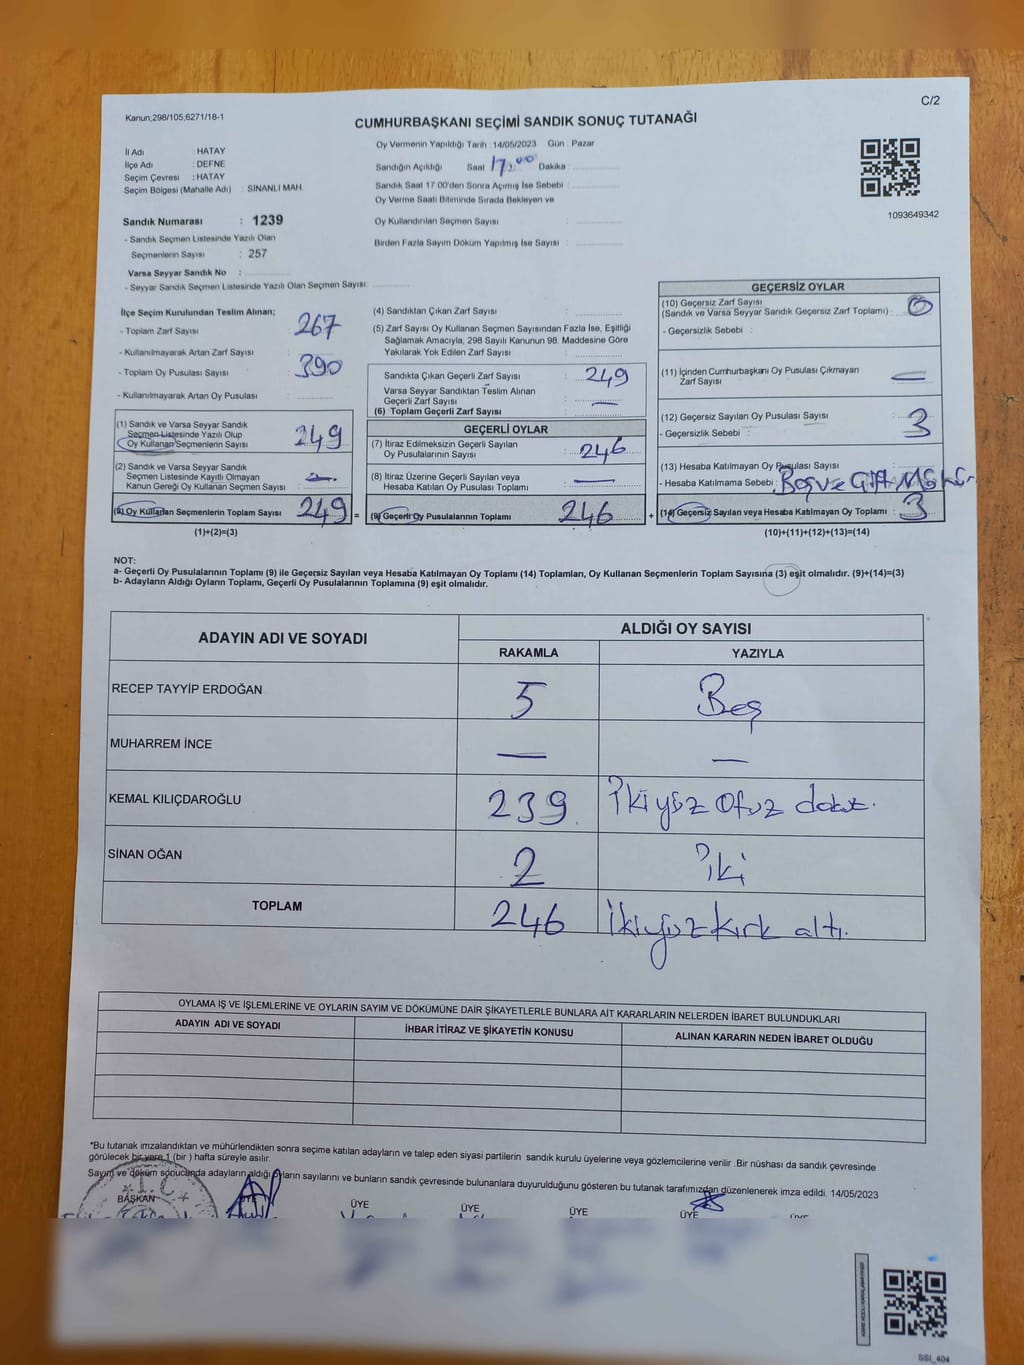 C/2
Kanun,298/105,6271/18-1
CUMHURBAŞKANI SEÇİMİ SANDIK SONUÇ TUTANAĞI
İl Adı : HATAY
İlçe Adı : DEFNE
Seçim Çevresi : HATAY
Seçim Bölgesi (Mahalle Adı) : SİNANLI MAH.
Oy Vermenin Yapıldığı Tarih : 14/05/2023 Gün : Pazar
Sandığın Açıldığı Saat 17.00 Dakika :
Sandık Saat 17.00'den Sonra Açılmış İse Sebebi :
Oy Verme Saati Bitiminde Sırada Bekleyen ve
Oy Kullandırılan Seçmen Sayısı :
Birden Fazla Sayım Döküm Yapılmış İse Sayısı :
1093649342
Sandık Numarası : 1239
- Sandık Seçmen Listesinde Yazılı Olan
Seçmenlerin Sayısı : 257
Varsa Seyyar Sandık No :
- Seyyar Sandık Seçmen Listesinde Yazılı Olan Seçmen Sayısı:
İlçe Seçim Kurulundan Teslim Alınan;
- Toplam Zarf Sayısı : 267
- Kullanılmayarak Artan Zarf Sayısı :
- Toplam Oy Pusulası Sayısı : 390
- Kullanılmayarak Artan Oy Pusulası :
(1) Sandık ve Varsa Seyyar Sandık
Seçmen Listesinde Yazılı Olup
Oy Kullanan Seçmenlerin Sayısı : 249
(2) Sandık ve Varsa Seyyar Sandık
Seçmen Listesinde Kayıtlı Olmayan
Kanun Gereği Oy Kullanan Seçmen Sayısı : —
(3) Oy Kullanan Seçmenlerin Toplam Sayısı : 249 =
(1)+(2)=(3)
(4) Sandıktan Çıkan Zarf Sayısı :
(5) Zarf Sayısı Oy Kullanan Seçmen Sayısından Fazla İse, Eşitliği
Sağlamak Amacıyla, 298 Sayılı Kanunun 98. Maddesine Göre
Yakılarak Yok Edilen Zarf Sayısı :
Sandıkta Çıkan Geçerli Zarf Sayısı : 249
Varsa Seyyar Sandıktan Teslim Alınan
Geçerli Zarf Sayısı : —
(6) Toplam Geçerli Zarf Sayısı :
GEÇERLİ OYLAR
(7) İtiraz Edilmeksizin Geçerli Sayılan
Oy Pusulalarının Sayısı : 246
(8) İtiraz Üzerine Geçerli Sayılan veya
Hesaba Katılan Oy Pusulası Toplamı : —
(9) Geçerli Oy Pusulalarının Toplamı : 246 +
GEÇERSİZ OYLAR
(10) Geçersiz Zarf Sayısı
(Sandık ve Varsa Seyyar Sandık Geçersiz Zarf Toplamı) : 0
- Geçersizlik Sebebi :
(11) İçinden Cumhurbaşkanı Oy Pusulası Çıkmayan
Zarf Sayısı : —
(12) Geçersiz Sayılan Oy Pusulası Sayısı : 3
- Geçersizlik Sebebi :
(13) Hesaba Katılmayan Oy Pusulası Sayısı :
- Hesaba Katılmama Sebebi : Boş ve Çift Mühür
(14) Geçersiz Sayılan veya Hesaba Katılmayan Oy Toplamı : 3
(10)+(11)+(12)+(13)=(14)
NOT:
a- Geçerli Oy Pusulalarının Toplamı (9) ile Geçersiz Sayılan veya Hesaba Katılmayan Oy Toplamı (14) Toplamları, Oy Kullanan Seçmenlerin Toplam Sayısına (3) eşit olmalıdır. (9)+(14)=(3)
b- Adayların Aldığı Oyların Toplamı, Geçerli Oy Pusulalarının Toplamına (9) eşit olmalıdır.
ADAYIN ADI VE SOYADI
ALDIĞI OY SAYISI
RAKAMLA YAZIYLA
RECEP TAYYİP ERDOĞAN 5 Beş
MUHARREM İNCE — —
KEMAL KILIÇDAROĞLU 239 İkiyüz Otuz dokuz.
SİNAN OĞAN 2 İki
TOPLAM 246 İkiyüz kırk altı.
OYLAMA İŞ VE İŞLEMLERİNE VE OYLARIN SAYIM VE DÖKÜMÜNE DAİR ŞİKAYETLERLE BUNLARA AİT KARARLARIN NELERDEN İBARET BULUNDUKLARI
ADAYIN ADI VE SOYADI İHBAR İTİRAZ VE ŞİKAYETİN KONUSU ALINAN KARARIN NEDEN İBARET OLDUĞU
*Bu tutanak imzalandıktan ve mühürlendikten sonra seçime katılan adayların ve talep eden siyasi partilerin sandık kurulu üyelerine veya gözlemcilerine verilir .Bir nüshası da sandık çevresinde
görülecek bir yere 1 (bir ) hafta süreyle asılır.
Sayım ve döküm sonucunda adayların aldığı oyların sayılarını ve bunların sandık çevresinde bulunanlara duyurulduğunu gösteren bu tutanak tarafımızdan düzenlenerek imza edildi. 14/05/2023
T.C.
BAŞKAN ÜYE ÜYE ÜYE ÜYE ÜYE ÜYE
SSI_404